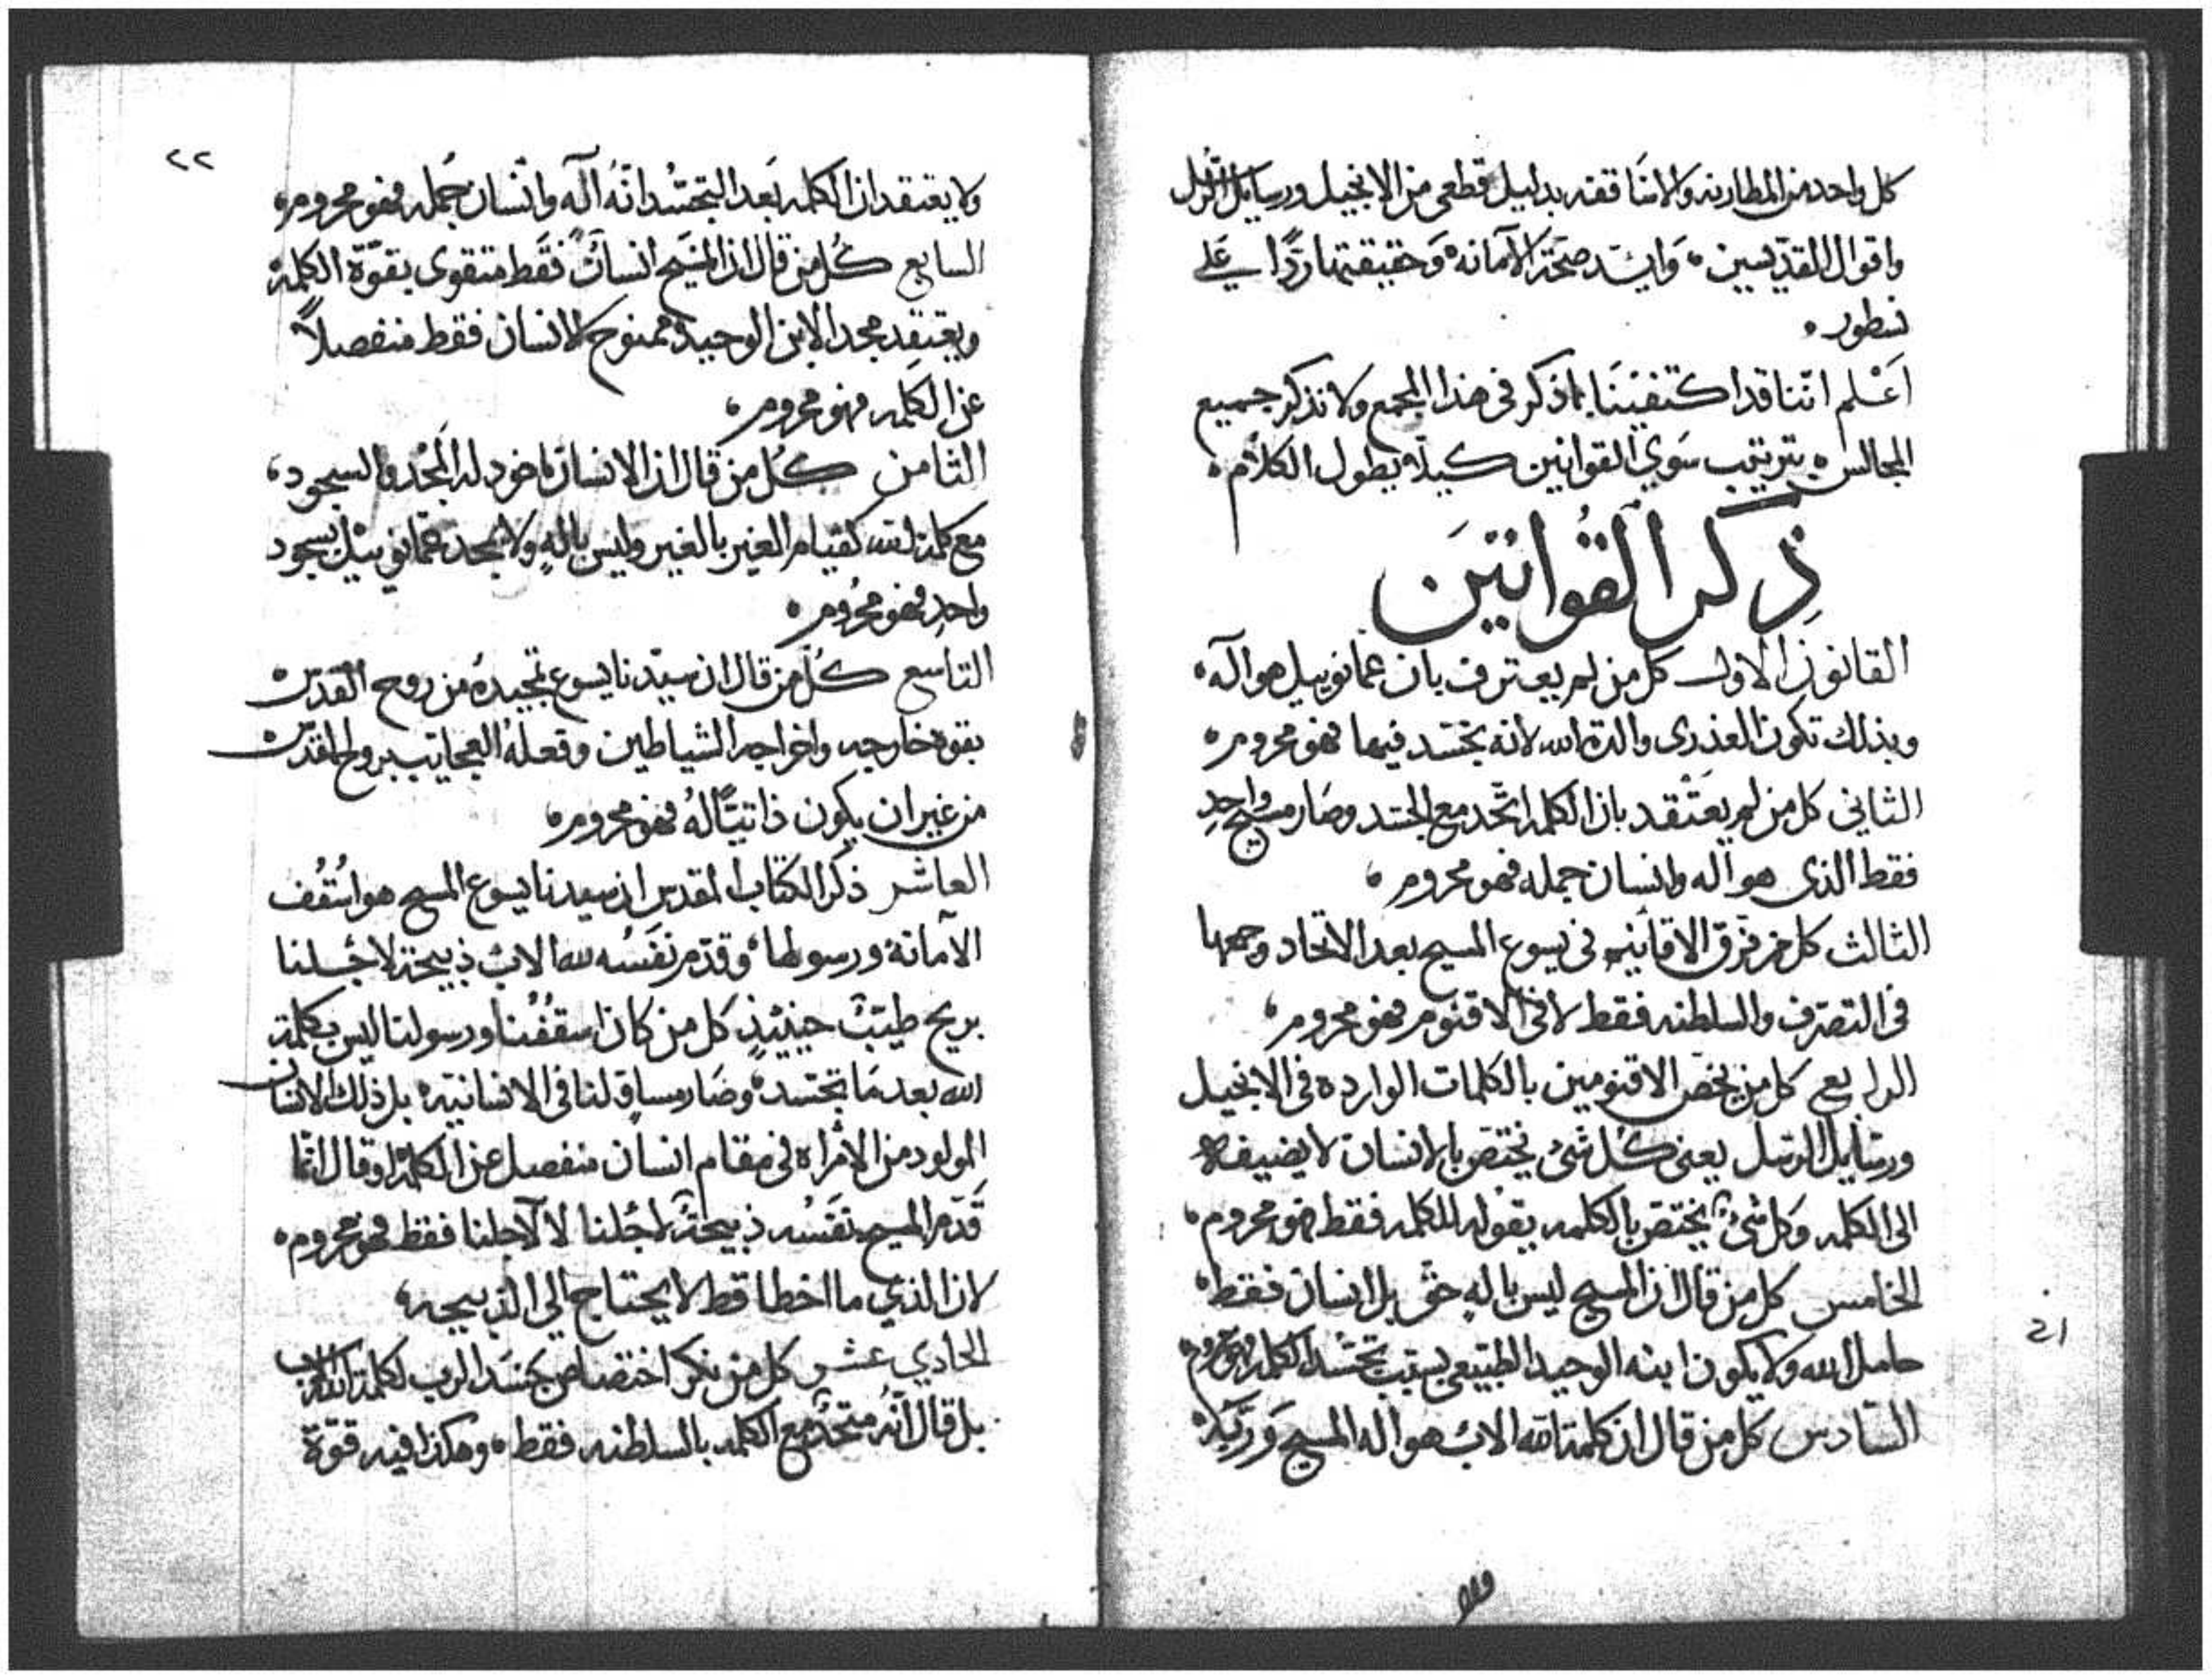 كل واحد من المطارنه والاساقفه بدليل قطعي من الانجيل ورسايل الرسل
واقوال القديسين، وايد صحة الامانه وحقيقتها ردًا علي
نسطور.
اعْلم اننا قد اكتفينا بما ذكر في هذا المجمع ولا نذكر جميع
المجالس بترتيب سوي القوانين كيلا يطول الكلام.
ذكر القوانين
القانون الاول كل من لم يعترف بان عمانوييل هو اله،
وبذلك تكون العذرى والدة الله لانه تجسد فيها فهو محروم.
الثاني كل من لم يعتقد بان الكلمه اتحد مع الجسد وصار مسيح واحد
فقط الذى هو اله وانسان جمله فهو محروم.
الثالث كل من فرق الاقانيم في يسوع المسيح بعد الاتحاد وجمعها
في التصرف والسلطنه فقط لا في الاقنوم فهو محروم،
الرابع كل من يخص الاقنومين بالكلمات الوارده في الانجيل
ورسايل الرسل يعنى كل شئ يختص بالانسان لا يضيفه
الى الكلمه وكل شئ يختص بالكلمه يقوله للكلمه فقط فهو محروم،
الخامس كل من قال ان المسيح ليس باله حق بل انسان فقط
حامل الله ولا يكون ابنه الوحيد الطبيعي بسبب تجسد الكلمه فهو محروم
السادس كل من قال ان كلمة الله الاب هو اله المسيح وربه
21
٢٢
ولا يعتقد ان الكلمه بعد التجسد انه اله وانسان جمله فهو محروم.
السابع كل من قال ان المسيح انسان فقط متقوى بقوة الكلمة
ويعتقد مجد الابن الوحيد ممنوح لانسان فقط منفصلاً
عن الكلمه فهو محروم،
الثامن كل من قال ان الانسان ماخود له المجد والسجود،
مع كلمة الله كقيام الغير بالغير وليس باله ولا يمجد عمانوييل بسجود
واحد فهو محروم.
التاسع كل من قال ان سيدنا يسوع تمجيده من روح القدس
بقوه خارجه واخراجه الشياطين وفعله العجايب بروح القدس
من غير ان يكون ذاتيًا له فهو محروم،
العاشر ذكر الكتاب المقدس ان سيدنا يسوع المسيح هو اسقف
الامانة ورسولها وقدم نفسه لله الاب ذبيحة لاجلنا
بريح طيبة حينئذٍ كل من كان اسقفنا ورسولنا ليس بكلمة
الله بعد ما تجسد وصار مساوٍ لنا في الانسانية بل ذلك الانسان
المولود من الامراه في مقام انسان منفصل عن الكلمة او قال انما
قدم المسيح نفسه ذبيحةً لاجلنا لا لاجلنا فقط فهو محروم.
لان الذي ما اخطا قط لا يحتاج الي الذبيحه،
الحادي عشر كل من نكر اختصاص جسد الرب لكلمة الله الاب
بل قال انه متحد مع الكلمه بالسلطنه فقط، وهكذا فيه قوة